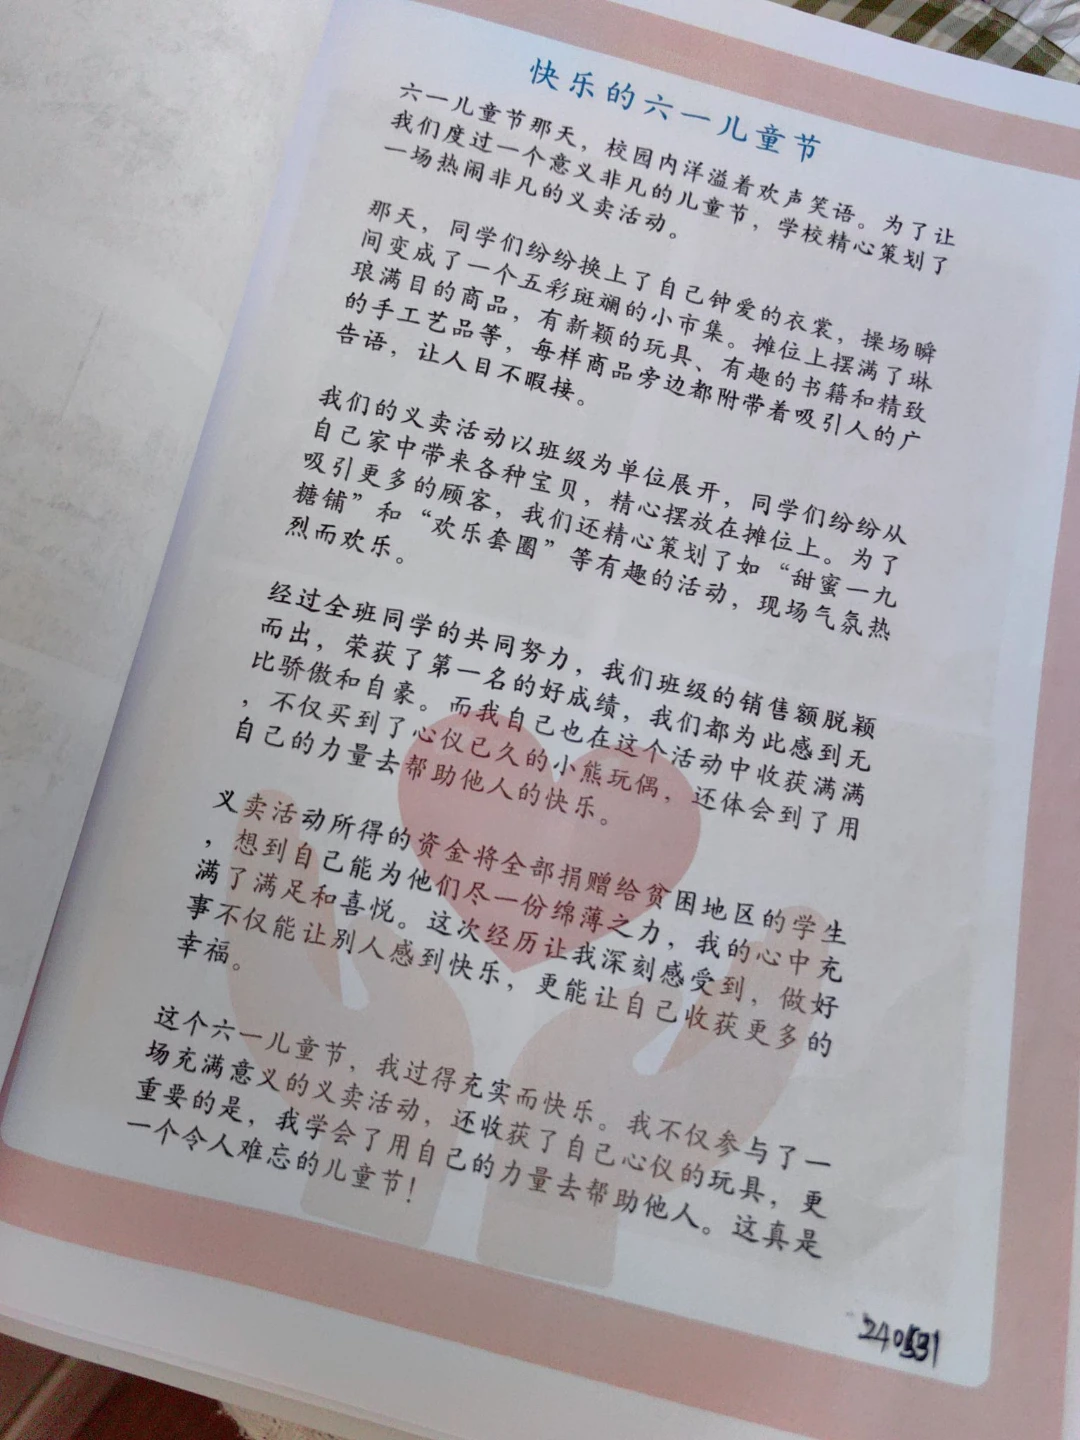 快乐的六一儿童节
六一儿童节那天，校园内洋溢着欢声笑语。为了让
我们度过一个意义非凡的儿童节，学校精心策划了
一场热闹非凡的义卖活动。
那天，同学们纷纷换上了自己钟爱的衣裳，操场瞬
间变成了一个五彩斑斓的小市集。摊位上摆满了琳
琅满目的商品，有新颖的玩具、有趣的书籍和精致
的手工艺品等，每样商品旁边都附带着吸引人的广
告语，让人目不暇接。
我们的义卖活动以班级为单位展开，同学们纷纷从
自己家中带来各种宝贝，精心摆放在摊位上。为了
吸引更多的顾客，我们还精心策划了如“甜蜜一九
糖铺”和“欢乐套圈”等有趣的活动，现场气氛热
烈而欢乐。
经过全班同学的共同努力，我们班级的销售额脱颖
而出，荣获了第一名的好成绩，我们都为此感到无
比骄傲和自豪。而我自己也在这个活动中收获满满
，不仅买到了心仪已久的小熊玩偶，还体会到了用
自己的力量去帮助他人的快乐。
义卖活动所得的资金将全部捐赠给贫困地区的学生
，想到自己能为他们尽一份绵薄之力，我的心中充
满了满足和喜悦。这次经历让我深刻感受到，做好
事不仅能让别人感到快乐，更能让自己收获更多的
幸福。
这个六一儿童节，我过得充实而快乐。我不仅参与了一
场充满意义的义卖活动，还收获了自己心仪的玩具，更
重要的是，我学会了用自己的力量去帮助他人。这真是
一个令人难忘的儿童节！
240531